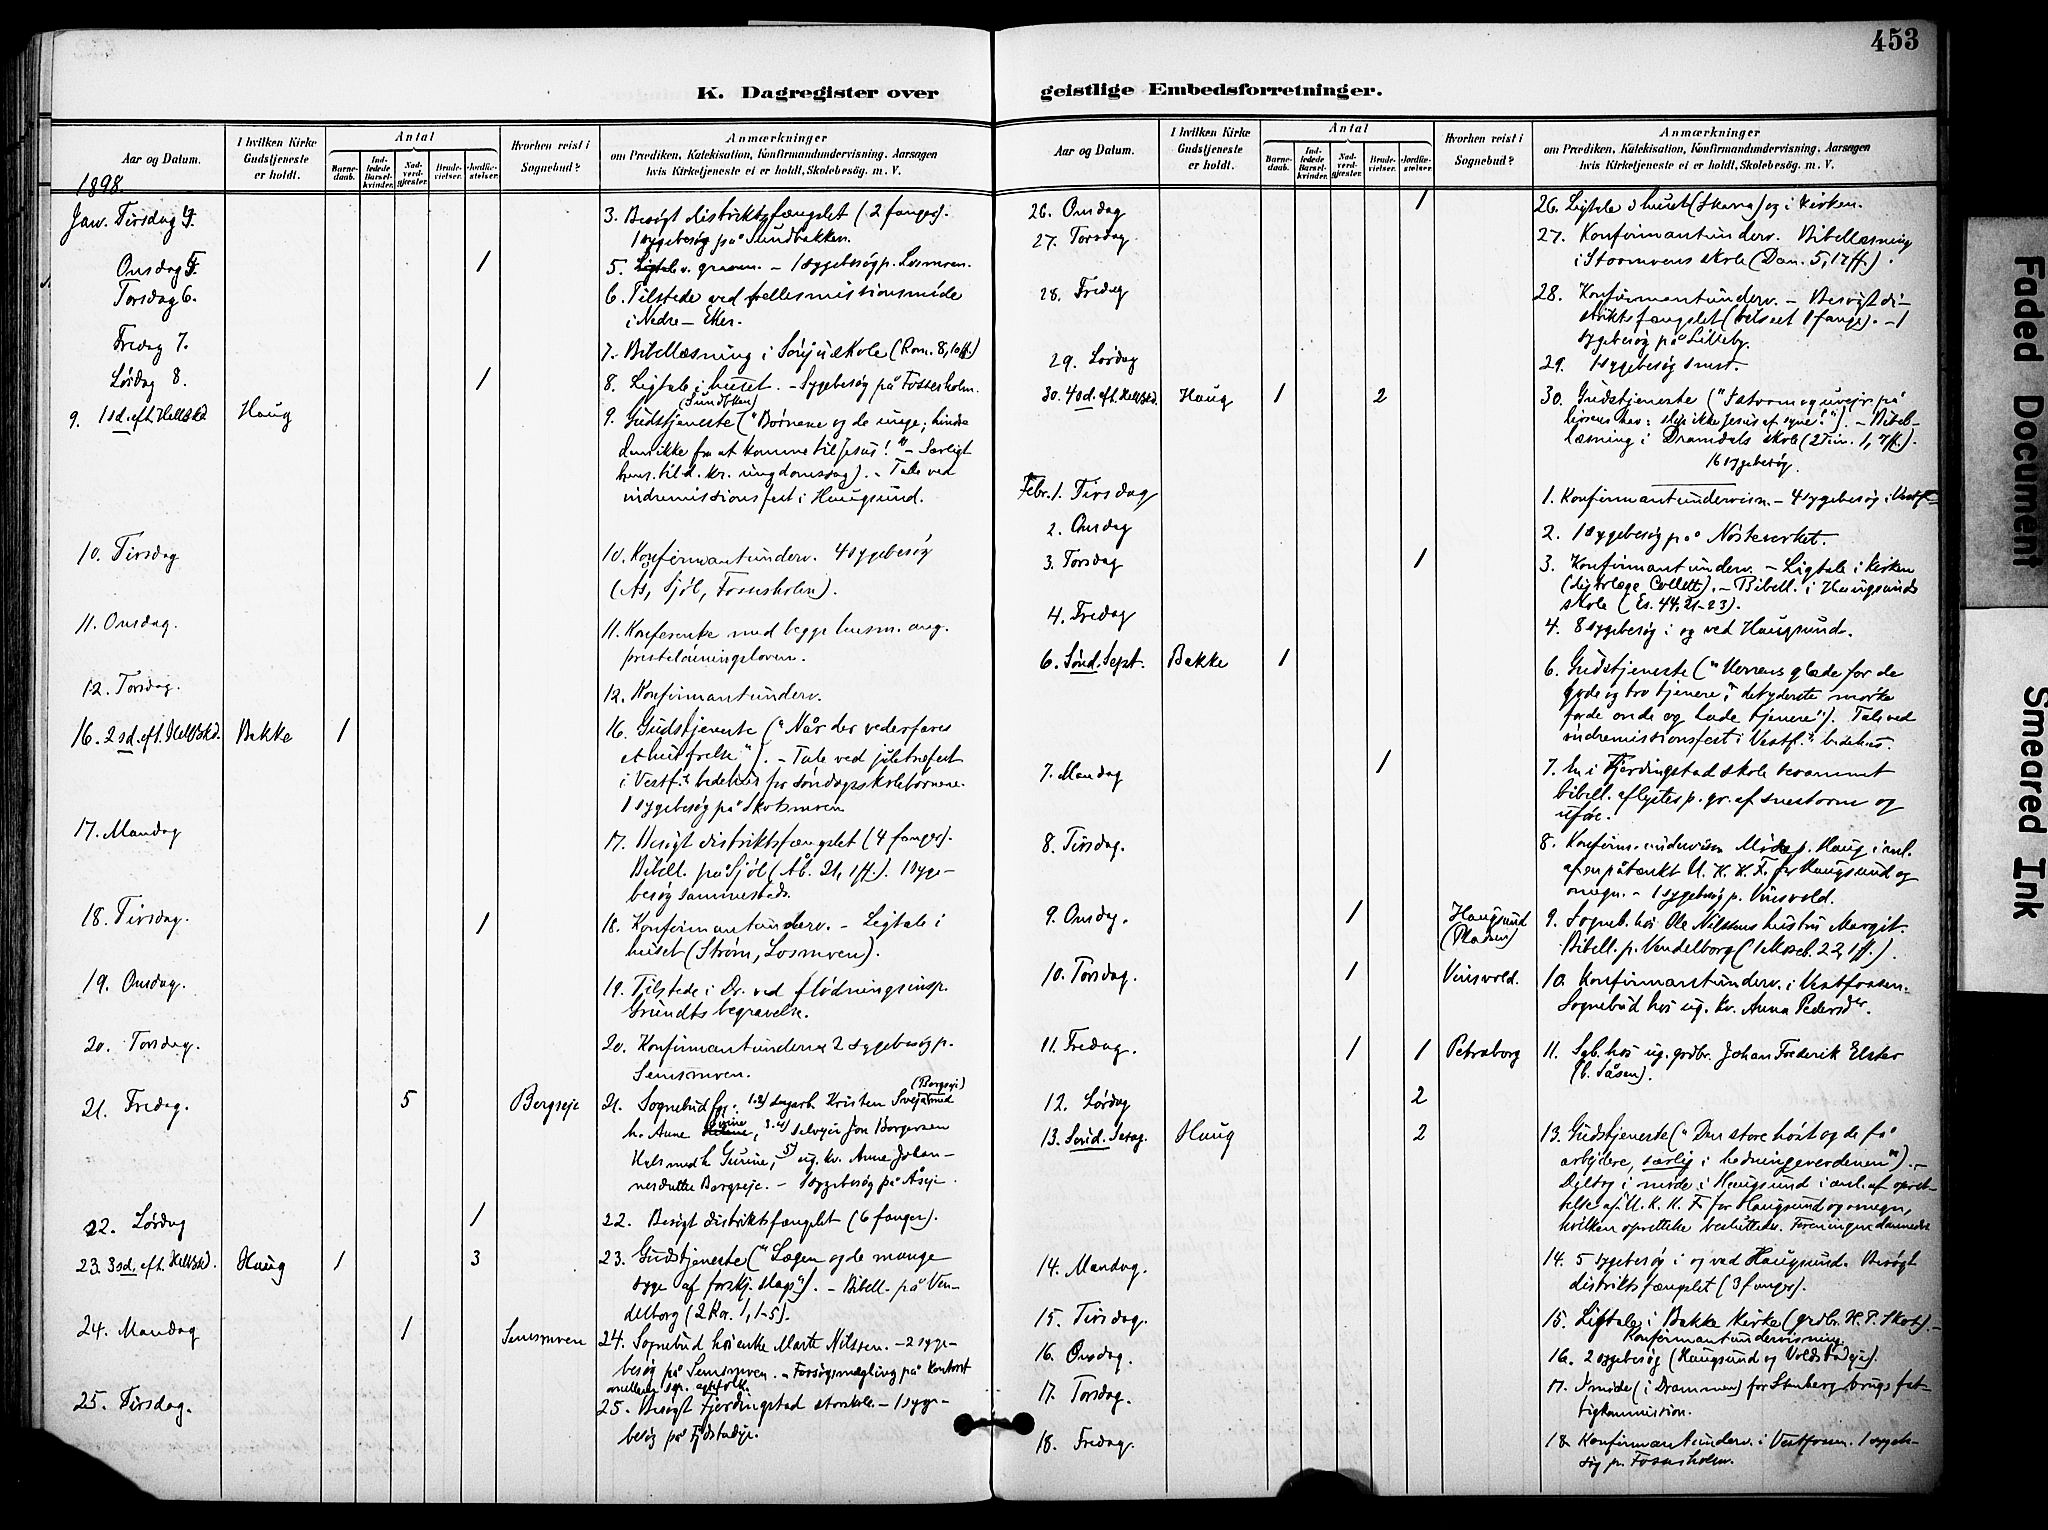 453
K. Dagregister over geistlige Embedsforretninger.
Aar og Datum.
I hvilken Kirke Gudstjeneste er holdt.
Antal
Barne-daab.
Ind-ledede Barsel-kvinder.
Nad-verd-gjester.
Brude-vielser.
Jordfæ-stelser.
Hvorhen reist i Sognebud?
Anmærkninger
om Prædiken, Katekisation, Konfirmandundervisning. Aarsagen
hvis Kirketjeneste ei er holdt, Skolebesøg. m. V.
1898.
Jan. Tirsdag 4.
3. Besøgt distriktsfængslet (2 fanger).
1 sygebesøg på Sundbakken.
Onsdag 5. 1
5. Ligtale v. graven. – 1 sygebesøg p. Losmoen.
Torsdag 6.
6. Tilstede ved fællesmissionsmøde
i Nedre-Eker.
Fredag 7.
7. Bibellæsning i Sønju skole (Rom. 8, 10 ff.)
Lørdag 8. 1
8. Ligtale i huset. – Sygebesøg på Fossesholm.
(Sundbken)
9. 1 sd. eft. Hell3kd Haug
9. Gudstjeneste ("Børnene og de unge; hindre
dem ikke fra at komme til Jesus!" – Særligt
hens. til d. kr. ungdomsdag). – Tale ved
indremissionsfest i Haugsund.
10. Tirsdag
10. Konfirmantunderv. 4 sygebesøg
(Ås, Sjøl, Fossesholm).
11. Onsdag.
11. Konferenke med begge husm. ang.
presteløningsloven.
12. Torsdag.
12. Konfirmantunderv.
16. 2 sd. eft. Hell3kd. Bakke 1
16. Gudstjeneste ("Når der vederfares
et hus frelse"). – Tale ved juletræfest
i Vestf.s bedehus for søndagsskolebørnene.
1 sygebesøg på Skotsmoen
17. Mandag
17. Besøgt distriktsfængslet (4 fanger).
Bibell. på Sjøl (Åb. 21, 1 ff.). 1 syge-
besøg sammesteds.
18. Tirsdag. 1
18. Konfirmantunderv. – Ligtale i
huset (Strøm, Losmoen).
19. Onsdag.
19. Tilstede i Dr. ved flødningsinsp.
Grundts begravelse.
20. Torsdag.
20. Konfirmantunderv. 2 sygebesøg p.
Semsmoen.
21. Fredag. 5 Bergseje
(Borgseje)
21. Sognebud fg.: 1-2) dagarb. Kristen Svejå med
h. Anne, 3-4) selvejer Jon Borgersen
Hals med h. Gurine, 5) ug. kv. Anne Johan-
nesdatter Borgseje. – Sygebesøg på Åseje.
22. Lørdag 1
22. Besøgt distriktsfængslet (6 fanger).
23. 3 sd. eft. Hell3kd. Haug 1 3
23. Gudstjeneste ("Lægen og de mange
syge af forskj. slags"). – Bibell. på Ven-
delborg (2 Kor. 1, 1-5).
24. Mandag 1 Semsmoen
24. Sognebud hos enke Marte Nilssen. – 2 syge-
besøg på Semsmoen. – Forsøgsmægling på kontoret
mellem sep. ægtefolk.
25. Tirsdag.
25. Besøgt Fjerdingstad storskole. – 1 syge-
besøg på Fjdstadeje.
Aar og Datum.
I hvilken Kirke Gudstjeneste er holdt.
Antal
Barne-daab.
Ind-ledede Barsel-kvinder.
Nad-verd-gjester.
Brude-vielser.
Jordfæ-stelser.
Hvorhen reist i Sognebud?
Anmærkninger
om Prædiken, Katekisation, Konfirmandundervisning. Aarsagen
hvis Kirketjeneste ei er holdt, Skolebesøg. m. V.
26. Onsdag 1
26. Ligtale i huset (Skara) og i kirken.
27. Torsdag.
27. Konfirmantunderv. Bibellæsning
i Stormoens skole (Dan. 5, 17 ff.).
28. Fredag
28. Konfirmantunderv. – Besøgt di-
striktsfængslet (helseet 1 fange). – 1
sygebesøg på Lilleby.
29. Lørdag
29. 1 sygebesøg smst.
30. 4 sd. eft. Hell3kd. Haug 1 2
30. Gudstjeneste ("I storm og uvejr på
livsens hav: slip ikke Jesus af syne!"). – Bibel-
læsning i Dramdals skole (2 Tim. 1, 7 ff.).
16 sygebesøg.
Febr. 1. Tirsdag
1. Konfirmantundervisn. – 4 sygebesøg i Vestf.
2. Onsdag
2. 1 sygebesøg på Nøsteverket.
3. Torsdag 1
3. Konfirmantunderv. – Ligtale i kirken
(distr.læge Collett). – Bibell. i Haugsunds
skole (Es. 44, 21-23).
4. Fredag
4. 8 sygebesøg i og ved Haugsund.
6. Sønd. Sept. Bakke 1
6. Gudstjeneste ("Herrens glæde for de
gode og tro tjenere, det yderste mørke
for de onde og lade tjenere"). Tale ved
indremissionsfest i Vestf.s bedehus.
7. Mandag 1
7. En i Fjerdingstad skole berammet
bibell. aflystes p. gr. af snestorm og
uføre.
8. Tirsdag.
8. Konfirm.undervisn. Møde p. Haug i anl.
af en påtænkt U. K. K. F. for Haugsund og
omegn. – 1 sygebesøg p. Vinsvold.
9. Onsdag. 1 Haugsund (Pladsen)
9. Sogneb. hos Ole Nilssens hustru Margit.
Bibell. p. Vendelborg (1 Moseb. 22, 1 ff.).
10. Torsdag. 1 Vinsvold.
10. Konfirmantunderv. i Vestfossen.
Sognebud hos ug. kv. Anna Pedersdr.
11. Fredag. 1 1 Petraborg
11. Sgb. hos ug. grdbr. Johan Frederik Elster
(b. Såsen).
12. Lørdag 2
13. Sønd. Sexag. Haug 2
13. Gudstjeneste ("Den store høst og de få
arbejdere, særlig i hedningeverdenen"). –
Deltog i møde i Haugsund i anl. af opret-
telse af U. K. K. F. for Haugsund og omegn,
hvilken oprettelse besluttedes. Foreningen dannedes
14. Mandag.
14. 5 sygebesøg i og ved Haugsund. Besøgt
distriktsfængslet (3 fanger).
15. Tirsdag.
15. Ligtale i Bakke kirke (grdbr. H. P. Skots). –
Konfirmantundervisning.
16. Onsdag.
16. 2 sygebesøg (Haugsund og Voldstadeje).
17. Torsdag.
17. I møde (i Drammen) for Stenberg brugs fat-
tigkommission.
18. Fredag.
18. Konfirmantunderv. i Vestfossen. 1 sygebe-
søg p. Fossesholm.
Faded Document
Smeared Ink